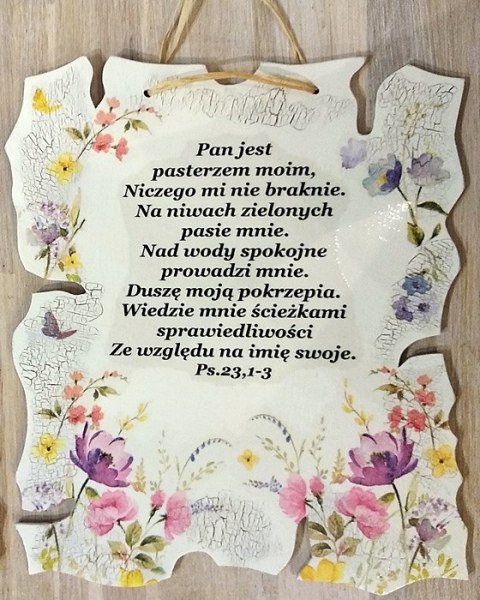 Pan jest
pasterzem moim,
Niczego mi nie braknie.
Na niwach zielonych
pasie mnie.
Nad wody spokojne
prowadzi mnie.
Duszę moją pokrzepia.
Wiedzie mnie ścieżkami
sprawiedliwości
Ze względu na imię swoje.
Ps.23,1-3